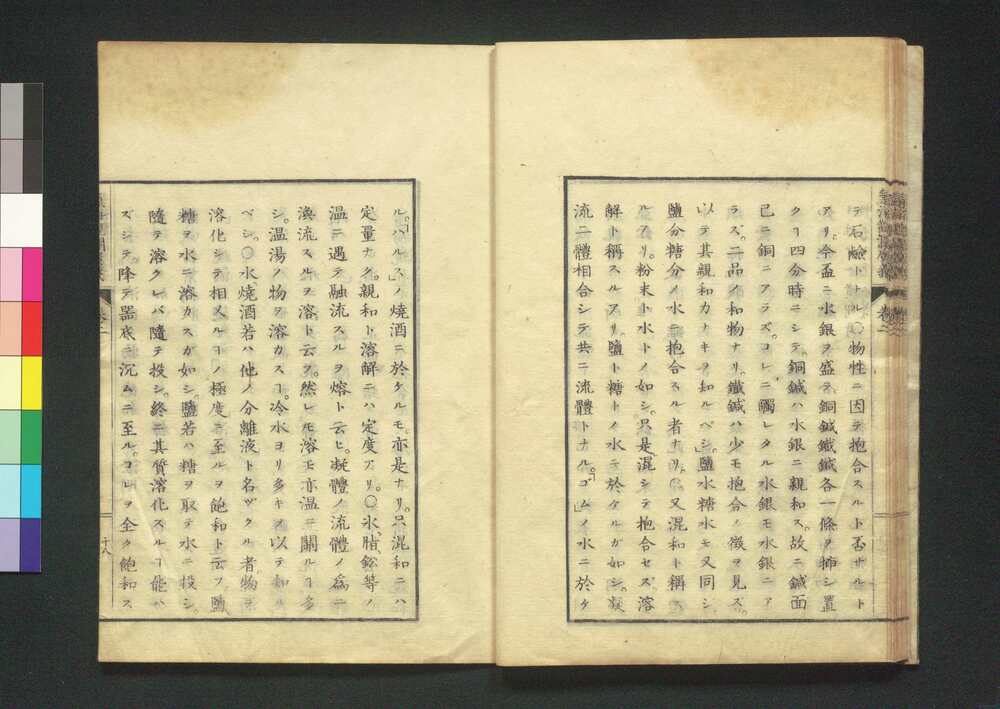 テ石鹼トナル〇物性ニ因テ抱合スルト否サルト
アリ。今盃ニ水銀ヲ盛テ、銅鍼鐵鍼各一條ヲ挿シ置
クヿ四分時ニシテ。銅鍼ハ水銀ニ親和ス。故ニ鍼面
已ニ銅ニアラズ。コレニ觸レタル水銀モ水銀ニア
ラズ。二品ノ和物ナリ。鐵鍼ハ少モ抱合ノ徴ヲ見ズ。
以テ其親和カナキヲ知ルベシ。鹽水糖水モ又同シ
鹽分糖分ノ水ニ抱合スル者ナリ。〇又混和ト稱ス
ルアリ。粉末ト水トノ如シ。只是混シテ抱合セズ。溶
解ト稱スルアリ。鹽ト糖トノ水ニ於ケルガ如シ。凝
流二體相合シテ共ニ流體トナル。「ゴム」ノ水ニ於ケ
ル。「ハルス」ノ燒酒ニ於ケルモ。亦是ナリ。只混和ニハ
定量ナク。親和ト溶解ニハ定度アリ。〇氷、脂、鉛等ノ
温ニ遇テ融流スルヲ熔ト云ヒ。凝體ノ流體ノ爲ニ
渙流スルヲ溶ト云フ。然レモ溶モ亦温ニ關ルヿ多
シ。温湯ノ物ヲ溶カスヿ。冷水ヨリ多キヲ以テ知ル
ベシ。〇水、燒酒若ハ他ノ分離液ト名ヅクル者。物ヲ
溶化シテ相スルヿノ極度ニ至ルヲ飽和ト云フ。鹽
糖ヲ水ニ溶カスガ如シ。鹽若ハ糖ヲ取テ水ニ投シ。
隨テ溶クレバ隨テ投シ。終ニ其質溶化スルヿ能ハ
ズシテ。降テ器底ニ沉ムニ至ル。コレヲ全ク飽和ス